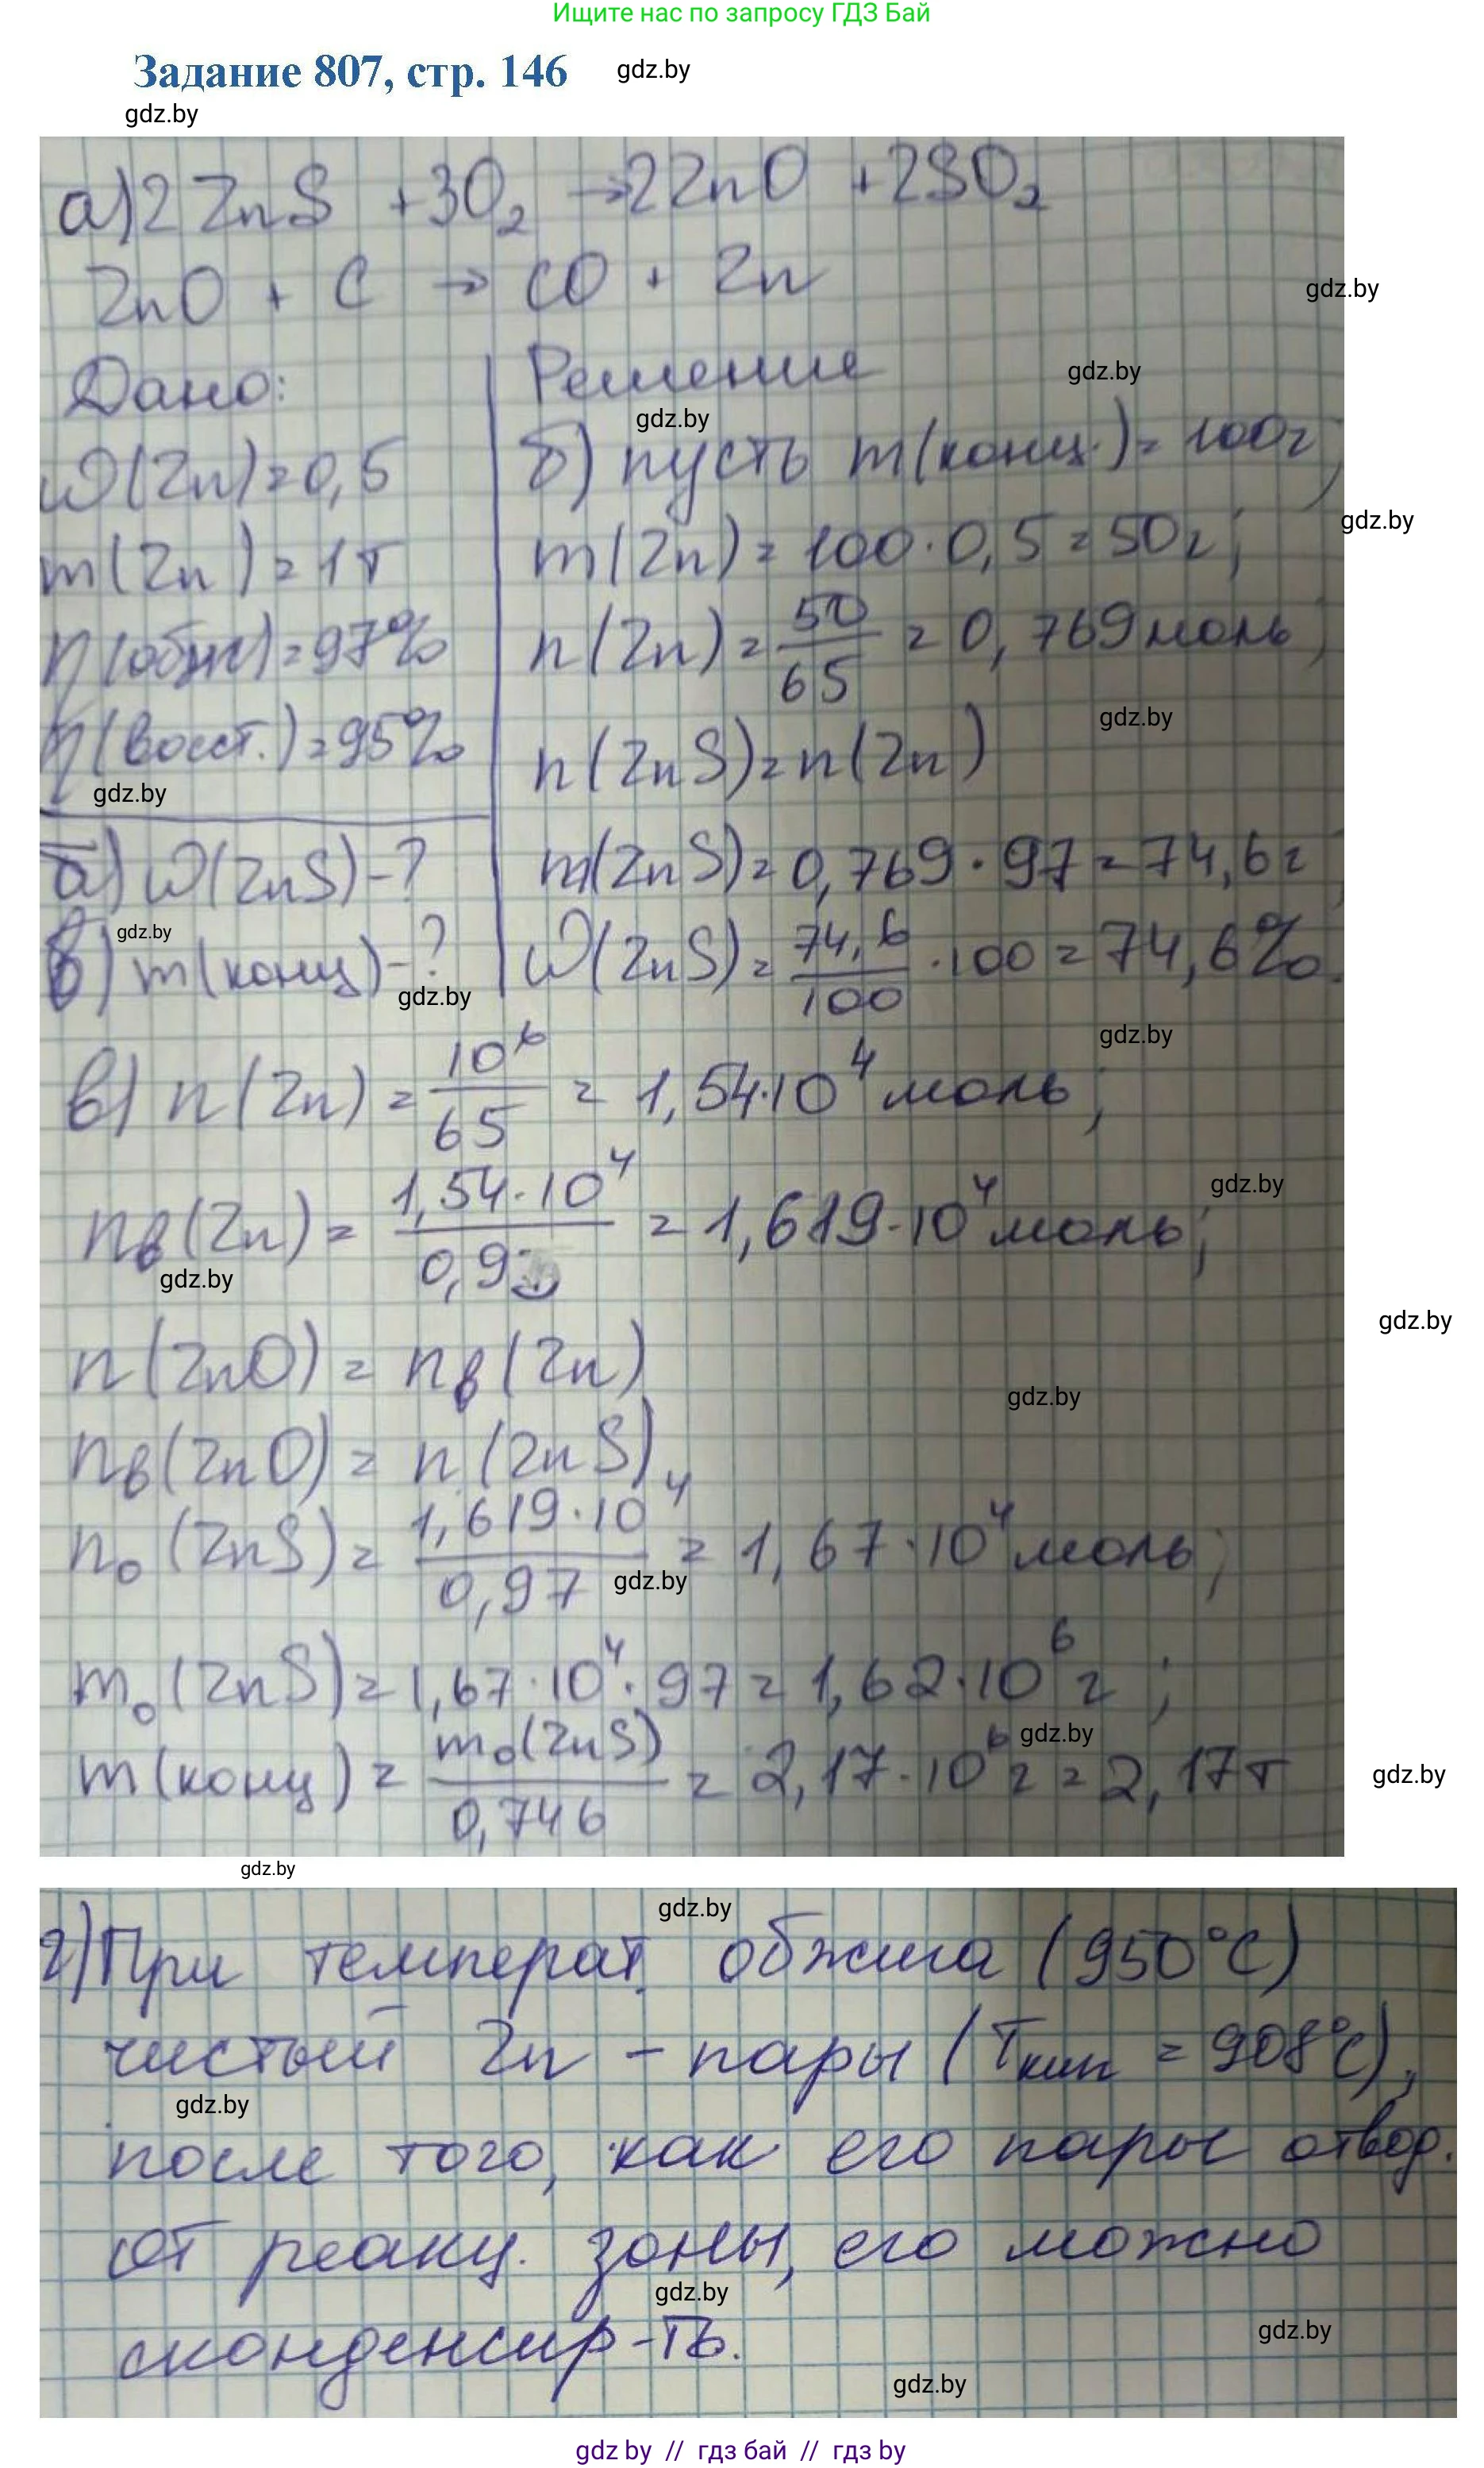 Ищите нас по запросу ГДЗ Бай
Задание 807, стр. 146 gdz.by
gdz.by
а) 2ZnS + 3O₂ → 2ZnO + 2SO₂
ZnO + C → CO + Zn
gdz.by
Дано:
ω(Zn) = 0,5
m(Zn) = 1т
η(обж) = 97%
η(восст.) = 95%
gdz.by
б) ω(ZnS) - ?
gdz.by
в) m(конц) - ?
gdz.by
Решение
gdz.by
gdz.by
б) пусть m(конц.) = 100г;
gdz.by
m(Zn) = 100 · 0,5 = 50г;
n(Zn) = 50/65 = 0,769 моль;
gdz.by
n(ZnS) = n(Zn)
m(ZnS) = 0,769 · 97 = 74,6г;
ω(ZnS) = 74,6/100 · 100 = 74,6%.
gdz.by
в) n(Zn) = 10⁶/65 = 1,54·10⁴ моль;
gdz.by
nв(Zn) = 1,54·10⁴/0,9 = 1,619·10⁴ моль;
gdz.by
gdz.by
n(ZnO) = nв(Zn)
gdz.by
nв(ZnO) = n(ZnS)
n₀(ZnS) = 1,619·10⁴/0,97 = 1,67·10⁴ моль;
gdz.by
m₀(ZnS) = 1,67·10⁴ · 97 = 1,62·10⁶ г;
gdz.by
m(конц) = m₀(ZnS)/0,746 = 2,17·10⁶ г = 2,17т
gdz.by
gdz.by
gdz.by
г) При температ. обжига (950°C)
чистый Zn – пары (Tкип = 908°C),
gdz.by
после того, как его пары отвод.
от реакц. зоны, его можно
gdz.by
gdz.by
сконденсир-ть.
gdz.by
gdz by // гдз бай // гдз by